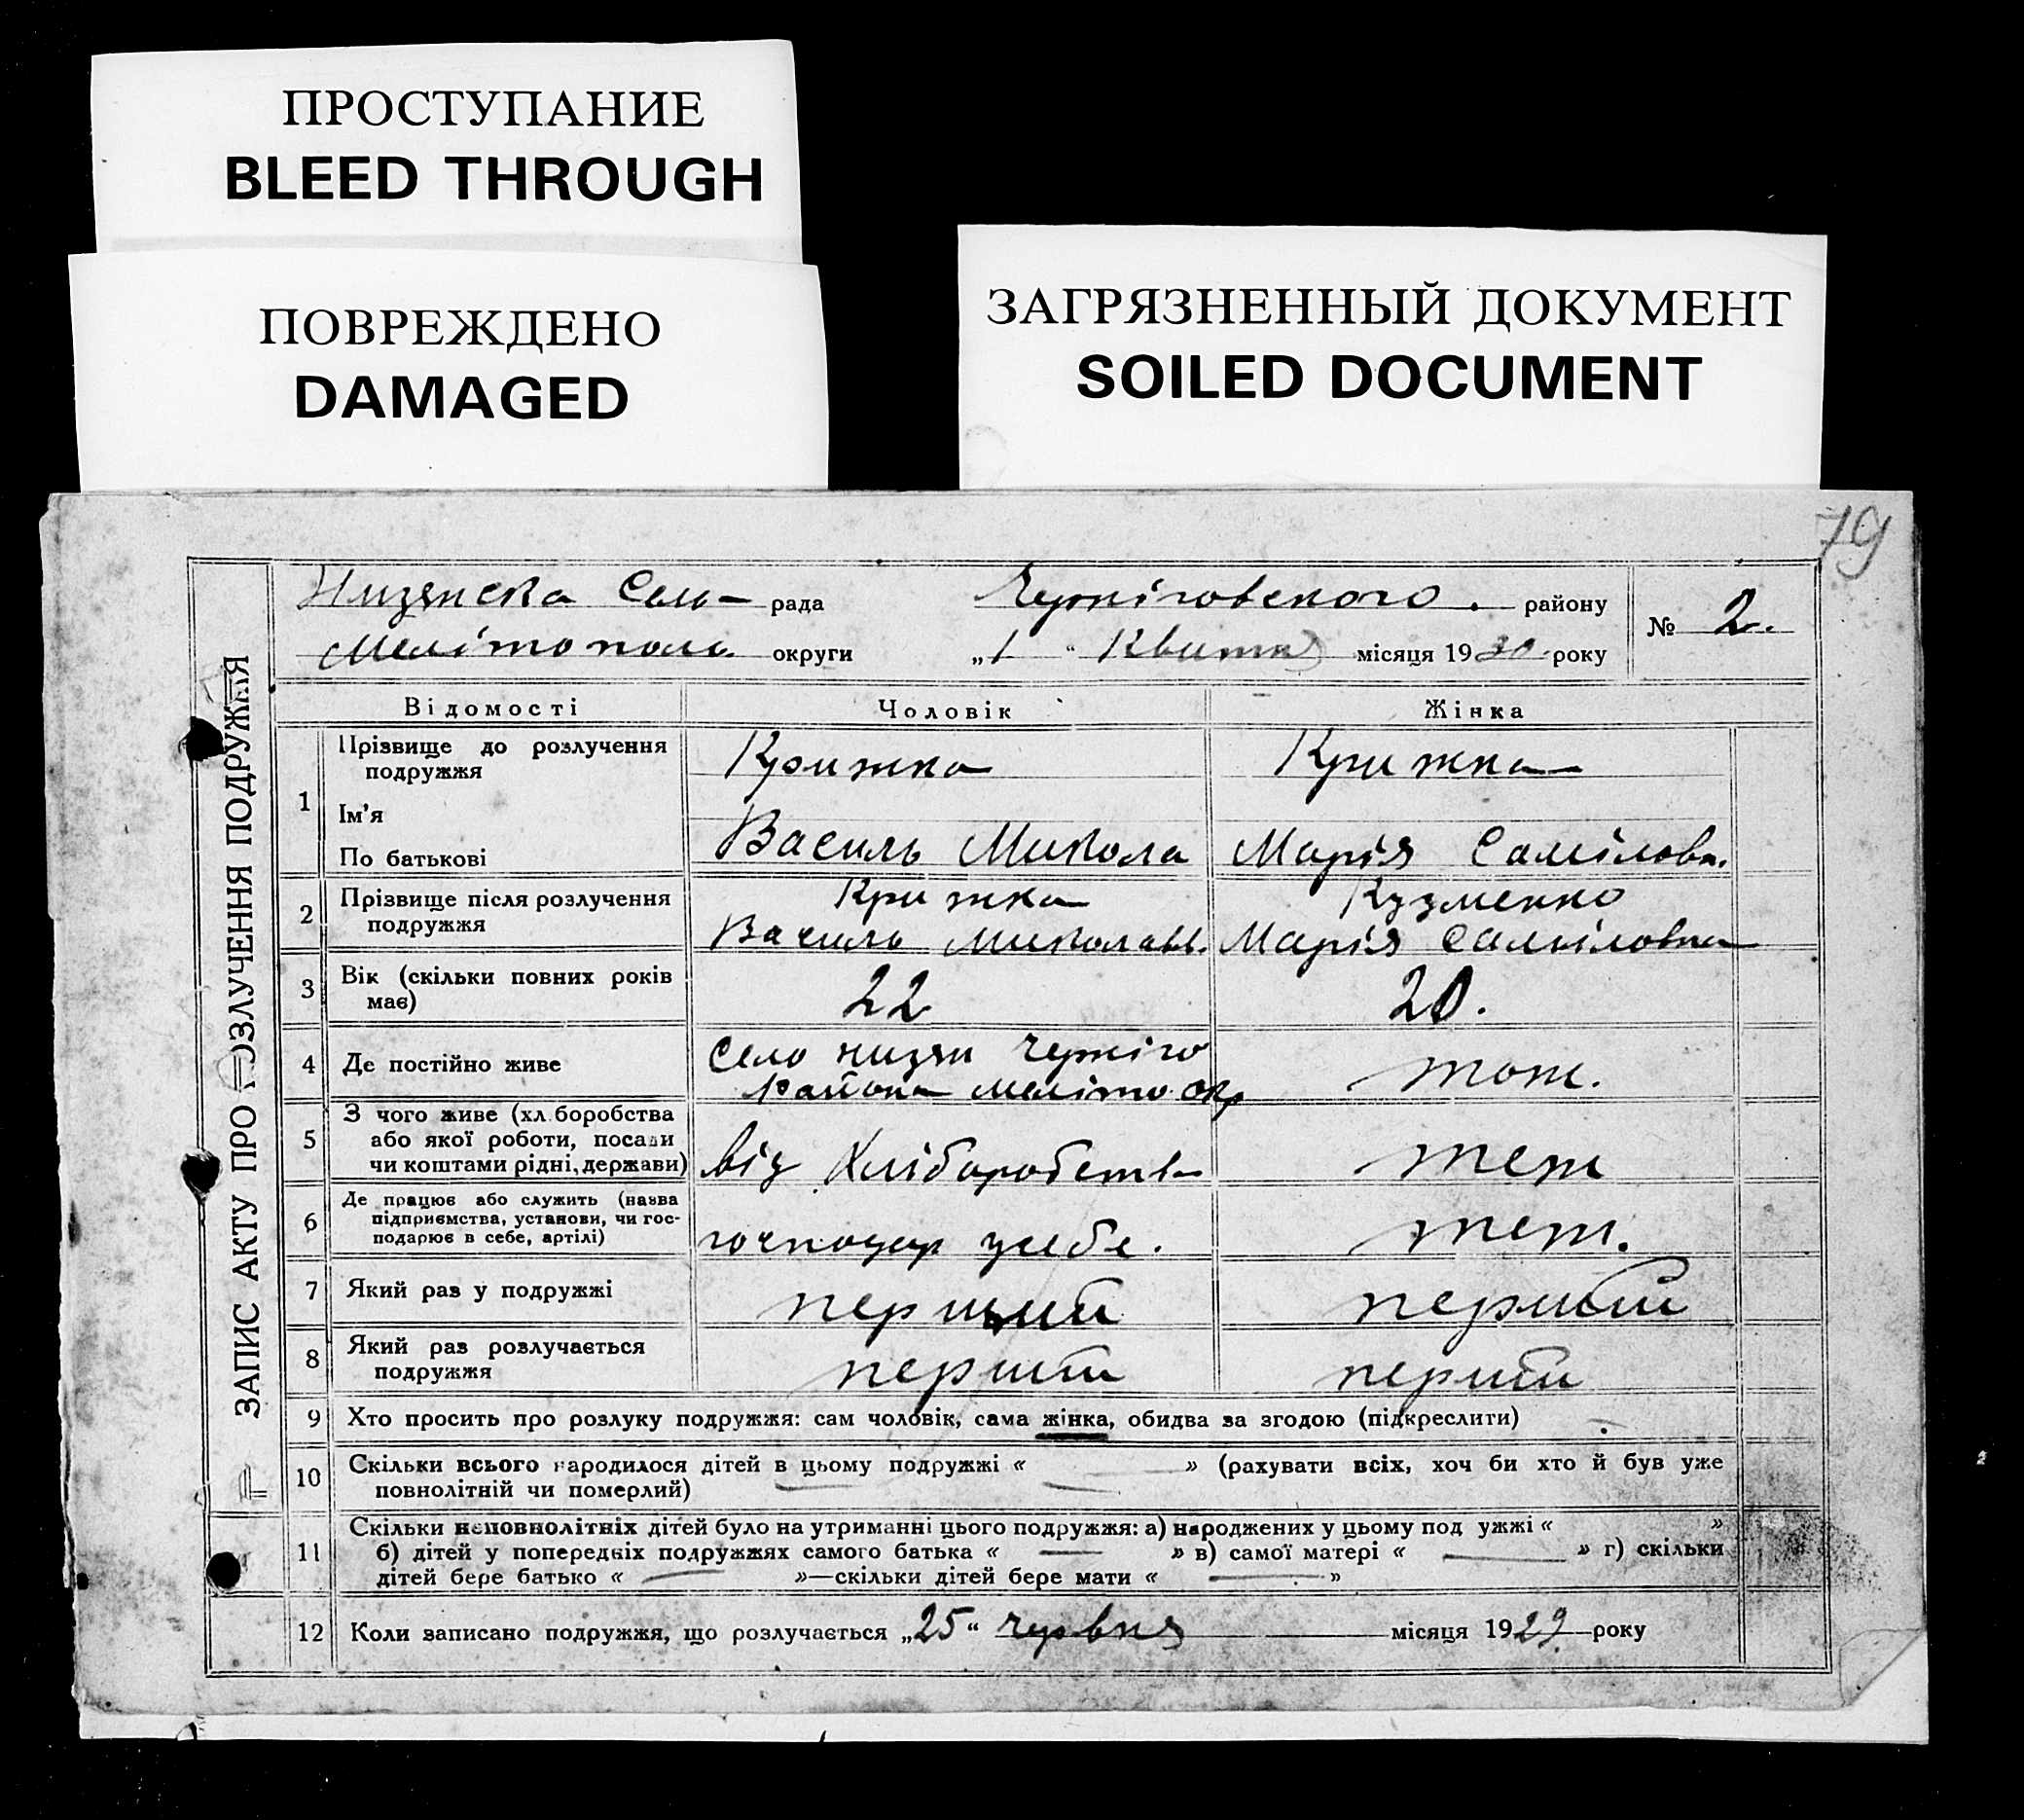 ПРОСТУПАНИЕ
BLEED THROUGH
ПОВРЕЖДЕНО
DAMAGED
ЗАГРЯЗНЕННЫЙ ДОКУМЕНТ
SOILED DOCUMENT
79
ЗАПИС АКТУ ПРО РОЗЛУЧЕННЯ ПОДРУЖЖЯ
Низянска Сель- рада Черніговського. району
№ 2.
Мелітополь. округи „1“ Квитня місяця 1930. року
Відомості Чоловік Жінка
1 Прізвище до розлучення подружжя Крижка Крижка
Ім'я
По батькові Василь Микола Марія Саміловн.
2 Прізвище після розлучення Крижка Кузменко
подружжя Василь Миколаєв. Марія Саміловна
3 Вік (скільки повних років має) 22 20.
4 Де постійно живе Село низяни Черніго тож.
района меліто окр
5 З чого живе (хл.боробства
або якої роботи, посади
чи коштами рідні, держави) від Хліборобств теж
6 Де працює або служить (назва
підприємства, установи, чи гос-
подарює в себе, артілі) господар у себе. теж.
7 Який раз у подружжі перший перший
8 Який раз розлучається
подружжя перший перший
9 Хто просить про розлуку подружжя: сам чоловік, сама жінка, обидва за згодою (підкреслити)
10 Скільки всього народилося дітей в цьому подружжі « — » (рахувати всіх, хоч би хто й був уже
повнолітній чи померлий)
11 Скільки неповнолітніх дітей було на утриманні цього подружжя: а) народжених у цьому под ужжі « »
б) дітей у попередніх подружжях самого батька « — » в) самої матері « — » г) скільки
дітей бере батько « — »—скільки дітей бере мати « — »
12 Коли записано подружжя, що розлучається „25“ червня місяця 1929. року